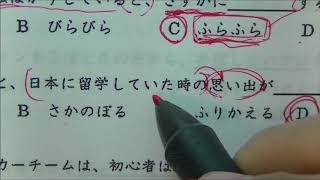 としていると、さすがに
B びらびら C ふらふら D
と、日本に留学していた時の思い出が
B さかのぼる ふりかえる D
カーチームは、初心者は